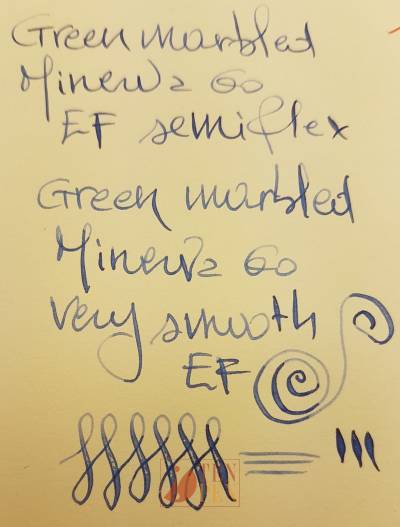 Green marbled
Minerva 60
EF semiflex
Green marbled
Minerva 60
Very smooth
EF